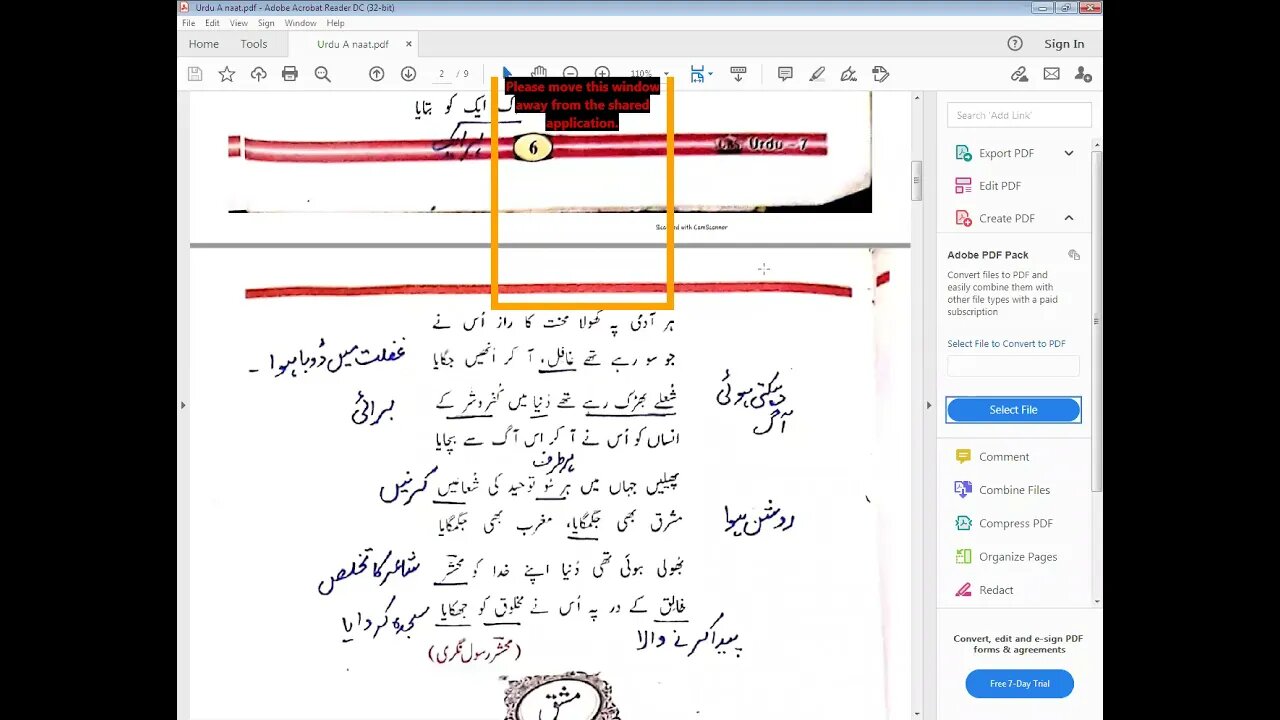 Urdu A naat.pdf - Adobe Acrobat Reader DC (32-bit)
File Edit View Sign Window Help
Home Tools Urdu A naat.pdf × Sign In
2 / 9 110%
Please move this window
away from the shared
application.
ایک کو بتایا
ہر ایک
6
Urdu - 7
Scanned with CamScanner
ہر آدمی پہ کھولا محنت کا راز اُس نے
جو سو رہے تھے غافل، آ کر اُنھیں جگایا
غفلت میں ڈوبا ہوا ۔
شُعلے بھڑک رہے تھے دُنیا میں کُفر و شر کے
دہکتی ہوئی
آگ
برائی
انساں کو اُس نے آ کر اس آگ سے بچایا
ہر طرف
پھیلیں جہاں میں ہر سُو توحید کی شُعائیں
کرنیں
مشرق بھی جگمگایا، مغرب بھی جگمگایا
روشن ہوا
بھُولی ہوئی تھی دُنیا اپنے خدا کو محشرؔ
شاعر کا تخلص
خالِق کے در پہ اُس نے مخلوق کو جھکایا
سجدہ کروایا
پیدا کرنے والا
(محشرؔ رسول نگری)
مشق
Search 'Add Link'
Export PDF
Edit PDF
Create PDF
Adobe PDF Pack
Convert files to PDF and
easily combine them with
other file types with a paid
subscription
Select File to Convert to PDF
Select File
Comment
Combine Files
Compress PDF
Organize Pages
Redact
Convert, edit and e-sign PDF
forms & agreements
Free 7-Day Trial